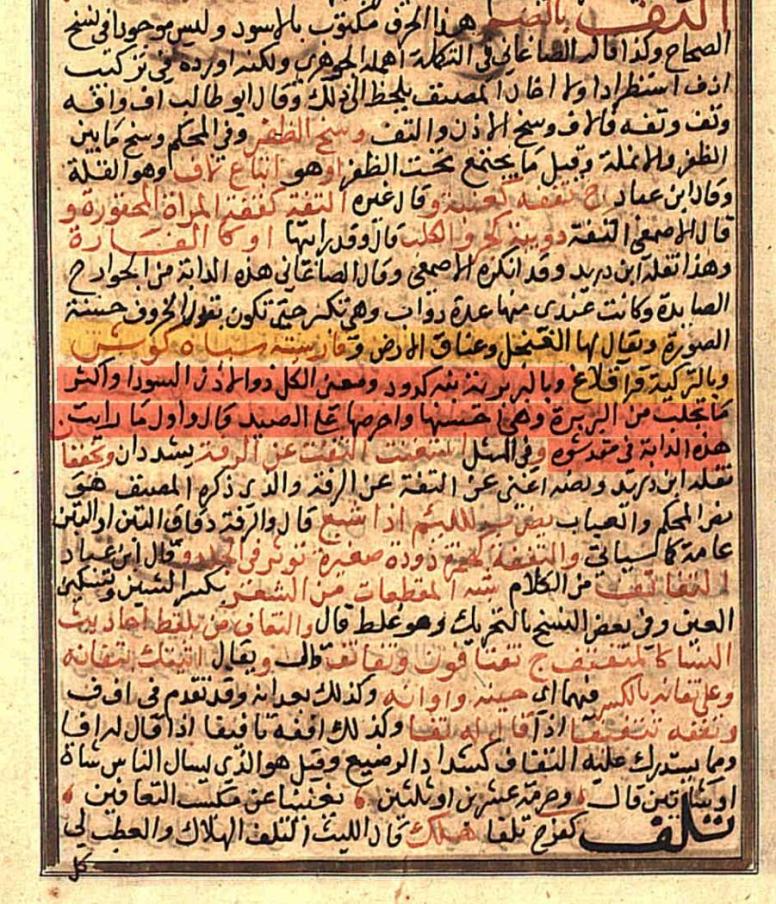 التف بالضم هذا الحرف مكتوب بالاسود وليس موجودا في نسخ
الصحاح وكذا قاله الصاغاني في التكملة اهمله الجوهري ولكنه اورده في تركيب
ا ف ف استطرادا ولا اخال المصنف يلحظ الى ذلك وقال ابو طالب اف وافه
وتف وتفه فالاف وسخ الاذن والتف وسخ الظفر وفي المحكم وسخ ما بين
الظفر والانملة وقيل ما يجتمع تحت الظفر او هو اتباع لاف وهو القلة
وقال ابن عباد ج تففة كعنبة وقال غيره التفة كقفة المراة المحقورة و
قال الاصمعي التفة دويبة كجرو الكلب قال وقد رايتها او كالفارة
وهذا نقله ابن دريد وقد انكره الاصمعي وقال الصاغاني هذه الدابة من الجوارح
الصايدة وكانت عندي منها عدة دواب وهي تكبر حتى تكون بقدر الخروف حسنة
الصورة ويقال لها الغنجل وعناق الارض وفارسيته سياه كوش
وبالتركية قراقلاغ وبالبربرية نبه كدود ومعنى الكل ذو الاذن السودا واكثر
ما تجلب من البربرة وهي احسنها واحرصها على الصيد قال واول ما رايت
هذه الدابة في مقدشوه وفي المثل استغنت التفة عن الرفة يشددان ويخففان
نقله ابن دريد ونصه اغنى عن التفة عن الرفة والذي ذكره المصنف هو
نص المحكم والعباب يضرب للئيم اذا شبع قال والرفة دقاق التبن او التبن
عامة كما سياتي والتففة كهمزة دودة صغيرة توثر في الجلد وقال ابن عباد
التفاتف من الكلام شبه المقطعات من الشعر بكسر الشين وتسكين
العين وفي بعض النسخ بالتحريك وهو غلط قال والتفاف من يلقط احاديث
النسا كالمتفتف ج تفتافون وتفاتف قال ويقال اتيتك بتفانه
وعلى تفانه بالكسر فيهما اى حينه واوانه وكذلك بعدانه وقد تقدم في ا ف ف
وتففه تتفيفا اذا قال له تفا وكذلك اففه تافيفا اذا قال له افا
ومما يستدرك عليه التفاف كشداد الوضيع وقيل هو الذي يسال الناس شاة
او شاتين قال وصرمة عشرين او ثلثين يغنينا عن مكسب التفافين
تلف كفرح تلفا هلك قال الليث التلف الهلاك والعطب في
كل